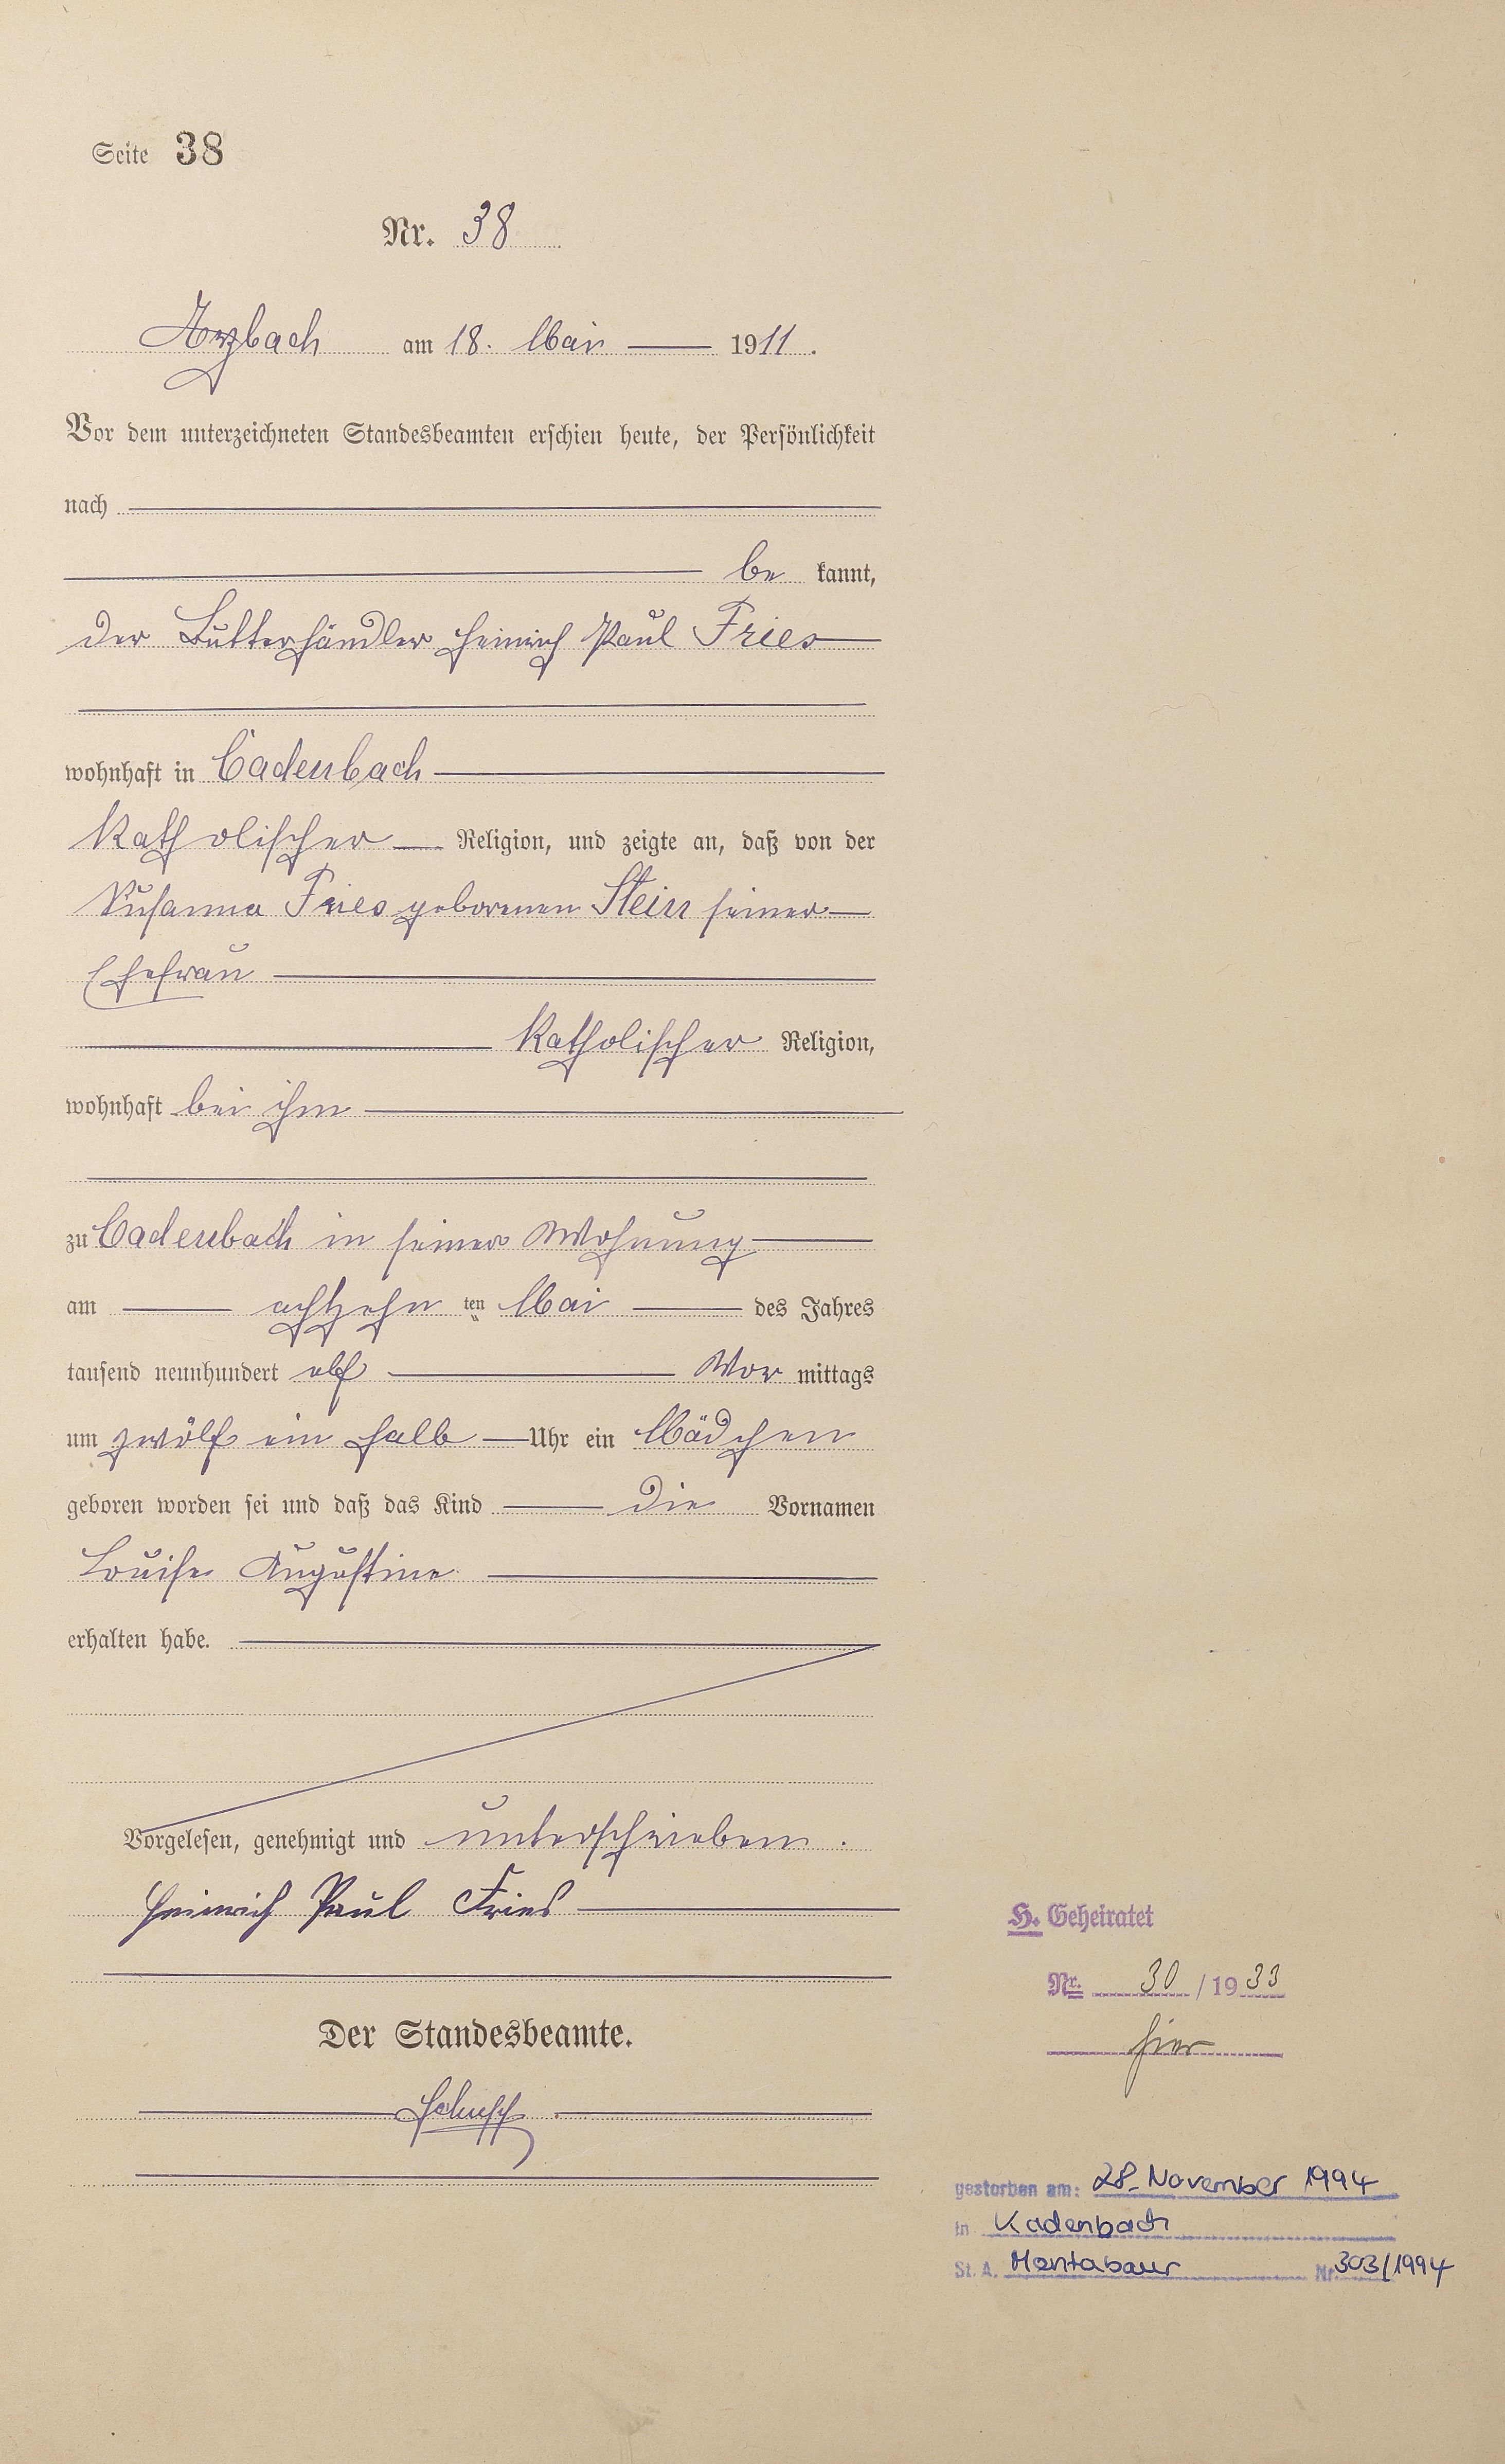 Seite 38
Nr. 38
Arzbach am 18. Mai 1911.
Vor dem unterzeichneten Standesbeamten erschien heute, der Persönlichkeit
nach
be kannt,
der Butterhändler Heinrich Paul Fries
wohnhaft in Cadenbach
Katholischer Religion, und zeigte an, daß von der
Susanna Fries geborenen Stein seiner
Ehefrau
Katholischer Religion,
wohnhaft bei ihm
zu Cadenbach in seiner Wohnung
am achtzehn ten Mai des Jahres
tausend neunhundert elf Vor mittags
um zwölf ein halb Uhr ein Mädchen
geboren worden sei und daß das Kind die Vornamen
Louise Augustine
erhalten habe.
Vorgelesen, genehmigt und unterschrieben.
Heinrich Paul Fries
Der Standesbeamte.
H. Geheiratet
Nr. 30 / 1933
hier
gestorben am: 28. November 1994
in Kadenbach
St. A. Montabaur Nr. 303/1994